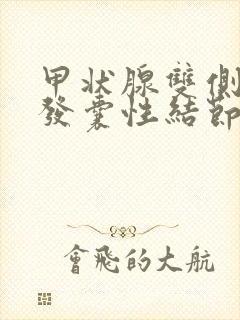 甲状腺雙側
發囊性結節
會飛的大航